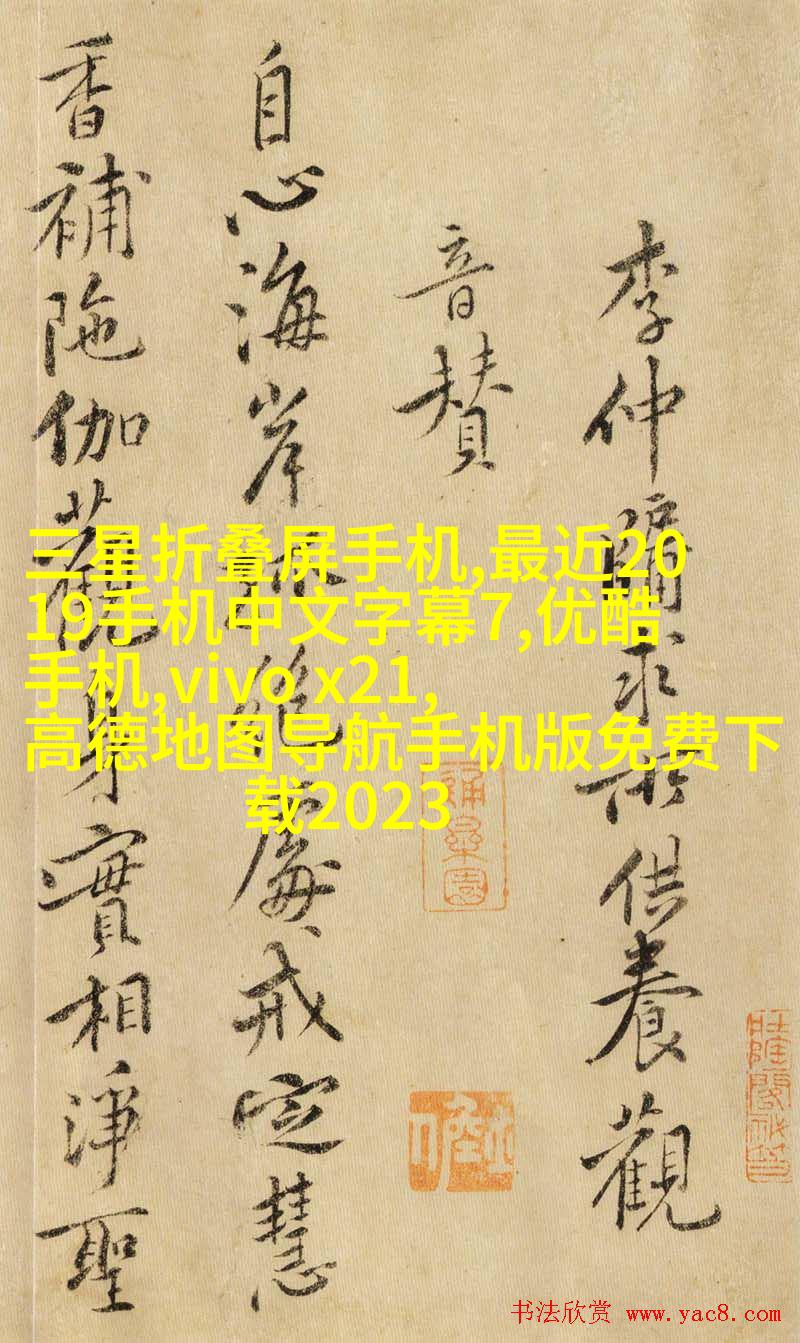 李仲牖求所供養觀
音賛
自心海岸孤絶處戒定慧
香補陁伽觀身實相淨聖
三星折叠屏手机,最近20
19手机中文字幕7,优酷
手机,vivo x21,
高德地图导航手机版免费下
载2023
书法欣赏 www.yac8.com